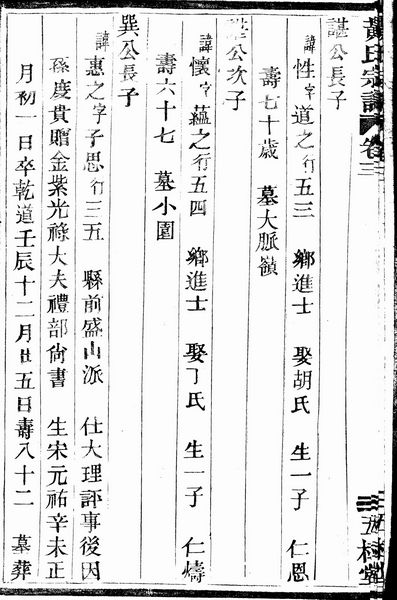 黄氏宗譜 卷三
諶公長子
諱性字道之行五三 鄉進士 娶胡氏 生一子 仁恩
壽七十歲 墓大脈嶺
諶公次子
諱懷字蘊之行五四 鄉進士 娶丁氏 生一子 仁燽
壽六十七 墓小園
巽公長子
諱惠之字子思行三五 縣前盛山派 仕大理評事後因
孫度貴贈金紫光祿大夫禮部尙書 生宋元祐辛未正
月初一日卒乾道壬辰十二月廿五日壽八十二 墓葬